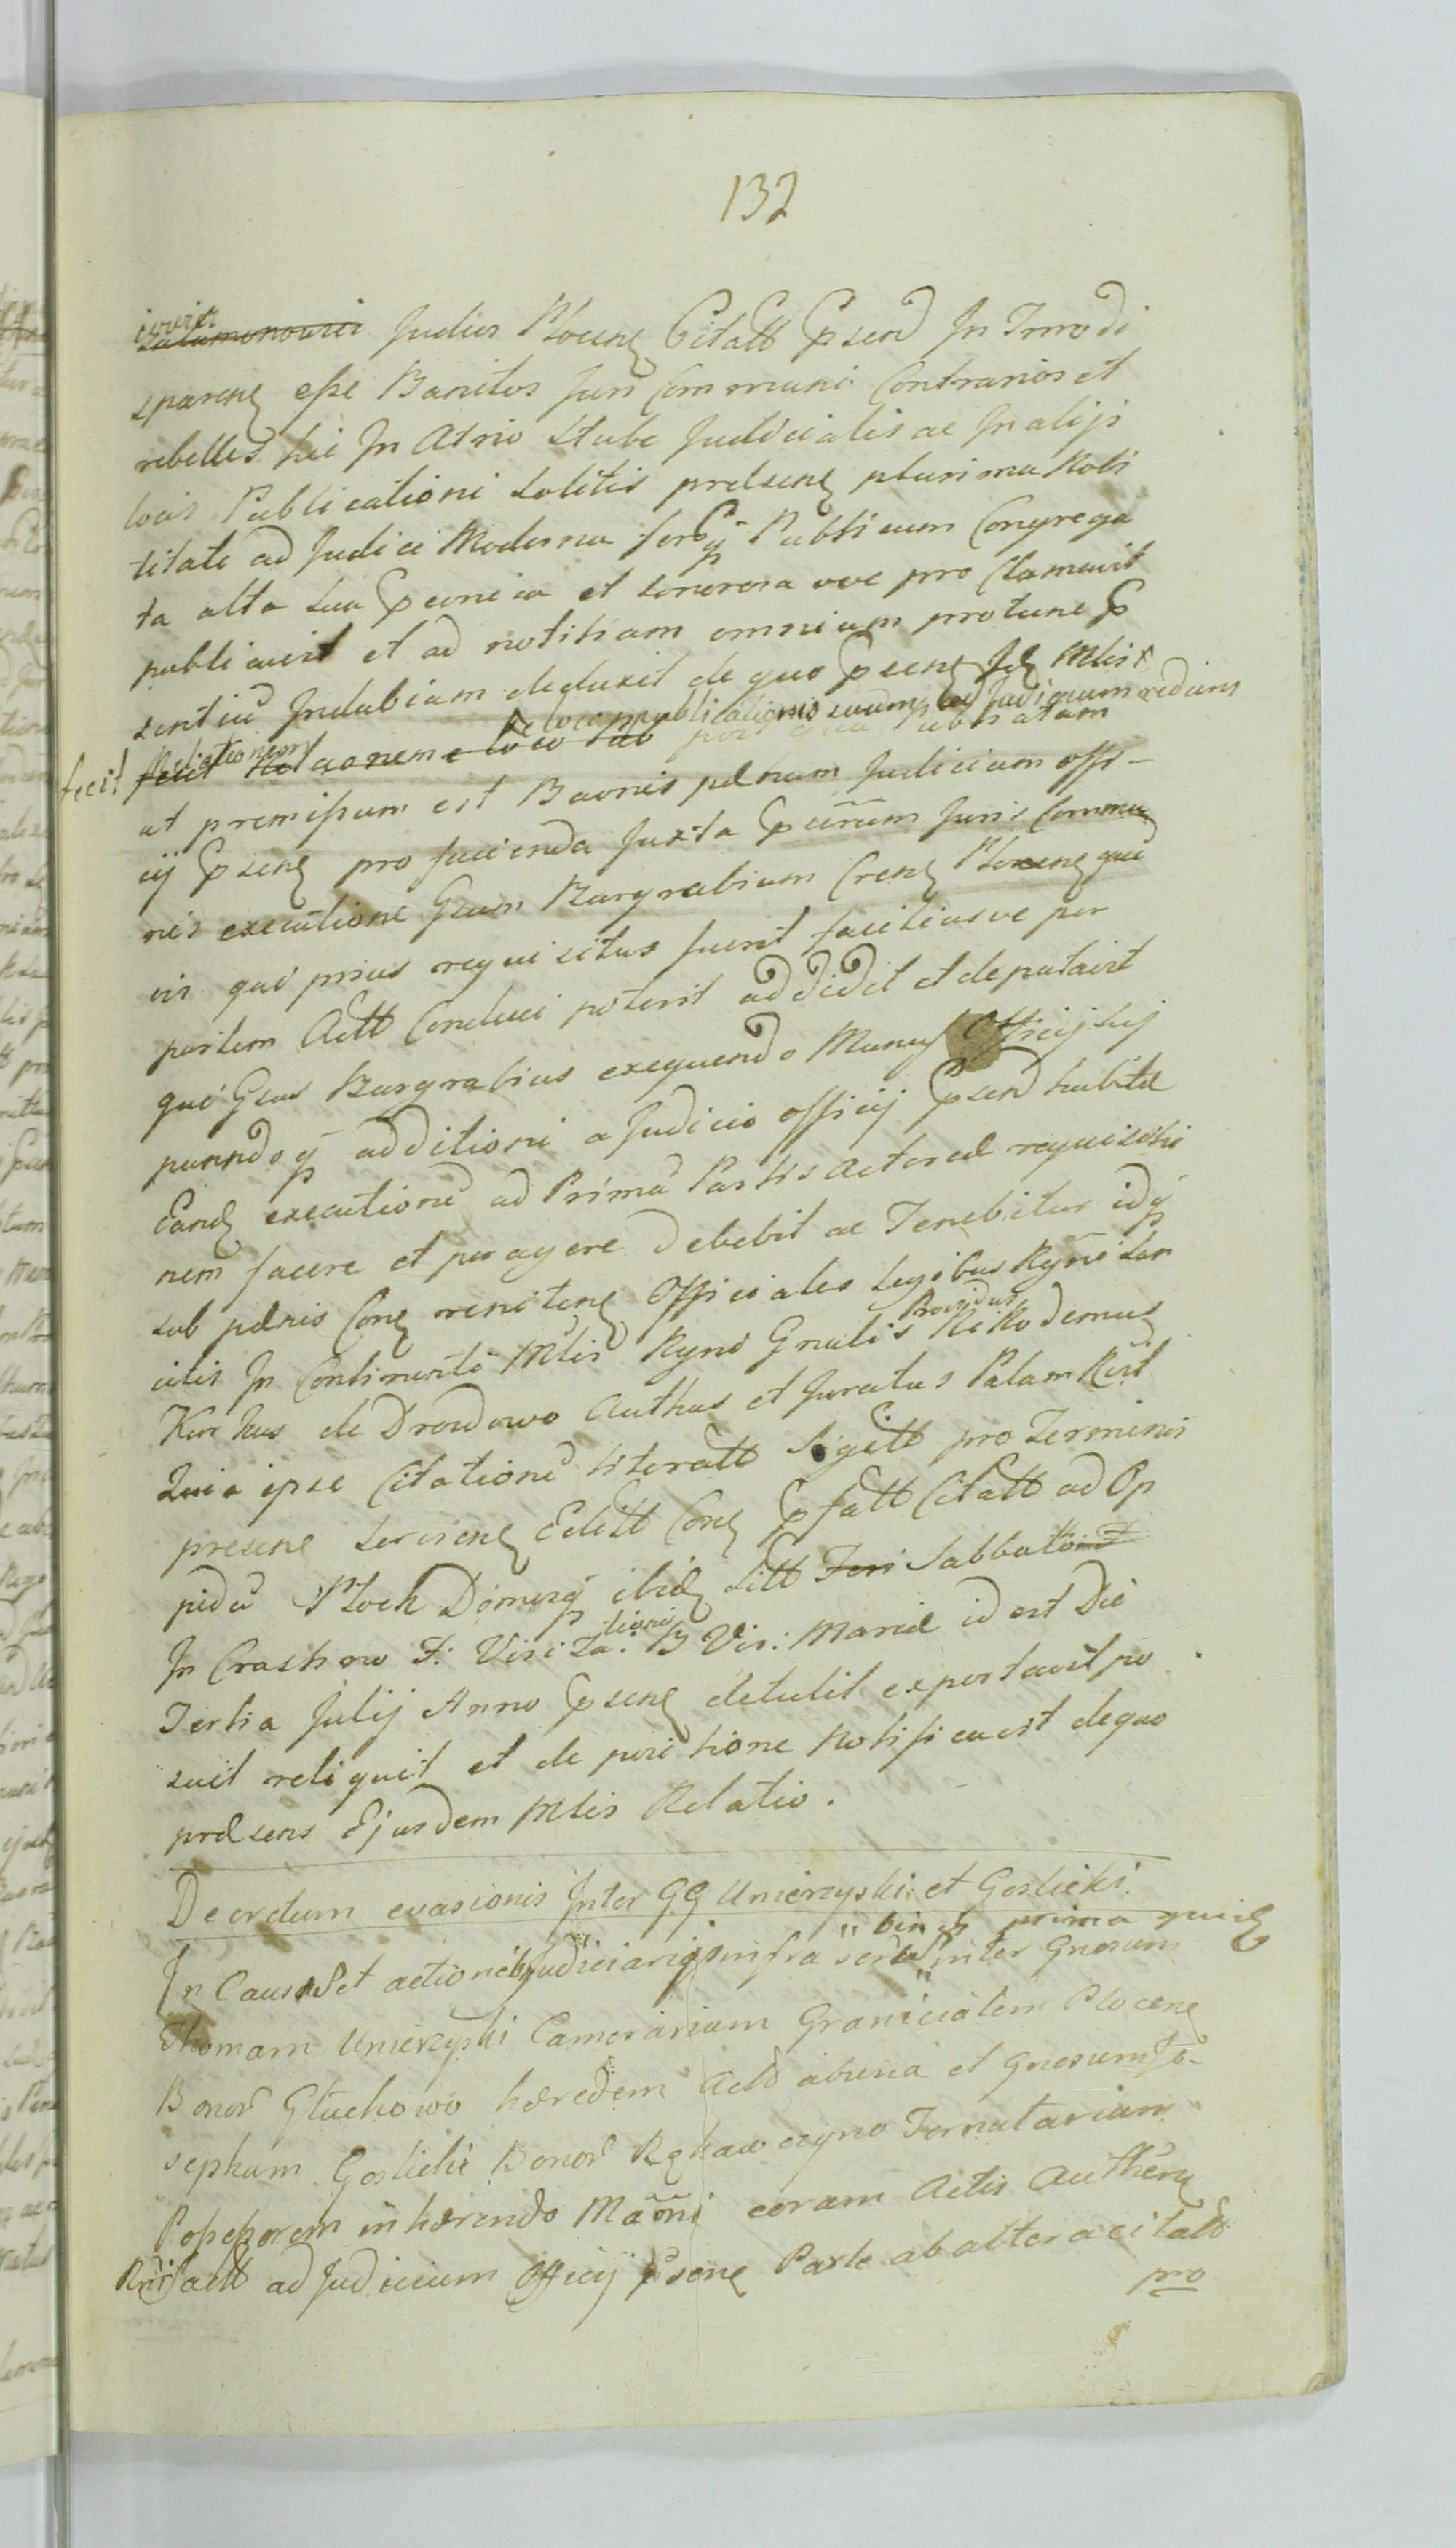 132
iowicz
Salamonowicz Judeus Plocens Citatt Psend In Tmodi
sparens esse Banitos Juri Communi Contrarios et
rebelles hic In Atrio Stube Judicialis ac In alijs
locis Publicationi solitis præsens plurima Nobi
litate ad Judicia Moderna forq Publicum Congrega
ta alta sua Pconicia et sonorosa voce pro Clamavit
publicavit et ad notitiam omnium protunc P
sentiu Indubiam deduxit de quo Psens Jd Mlis
Relationem de loco publicationis suum ad Judicium rediens
fecit fecit Relaonem e loco post qua Publicatam
ut premissum est Baonis pænam Judicium offi-
cij Psens pro facienda Juxta Pscriu Juris Commu
nis executione Gsum Burgrabium Crens Plocens qui
vis qui prius requisitus fuerit faciliusve per
partem Actt Conduci poterit addidit et deputavit
qui Gsus Burgrabius exequendo Munus Officij sui
parendoq additioni a Judicio officij Psend habitæ
Eand executione ad Prima Partis Actoreæ requisitio
nem facere et peragere debebit ac Tenebitur idq
sub pænis Con renitens Officiales Legibus Rgni san
citis In Continenti Mlis Rgni Gnalis Providus Nikodemus
Kurkus de Drozdowo Authus et Juratus Palam Rcit
Quia ipse Citatione literatt Sigtt pro Terminis
presens serviens Editt Cone Pfatt Citatt ad Op
pidu Plock Domusq ibid sitt Feri Sabbatho
In Crastino F: Visita:tionis B Vir: Mariæ id est Die
Tertia Julij Anno Psens detulit exportavit po
suit reliquit et de positione Notificavit de quo
præsens Ejusdem Mlis Relatio.
Decretum evasionis Inter GG Unierzyski et Goslicki.
binis prima quid
In Causa et actione Judiciarijs infra inter Gnosum
Thomam Unierzyski Camerarium Granicialem Plocens
Bonor Głuchowo hæredem Actt abuna et Gnosum Jo-
sephum Goslicki Bonor Rękawczyno Tenutarium
Possessorem inhærendo Maoni coram Actis Authen
Rnis factt ad Judicium Officij Psens Parte ab altera citatt
pro